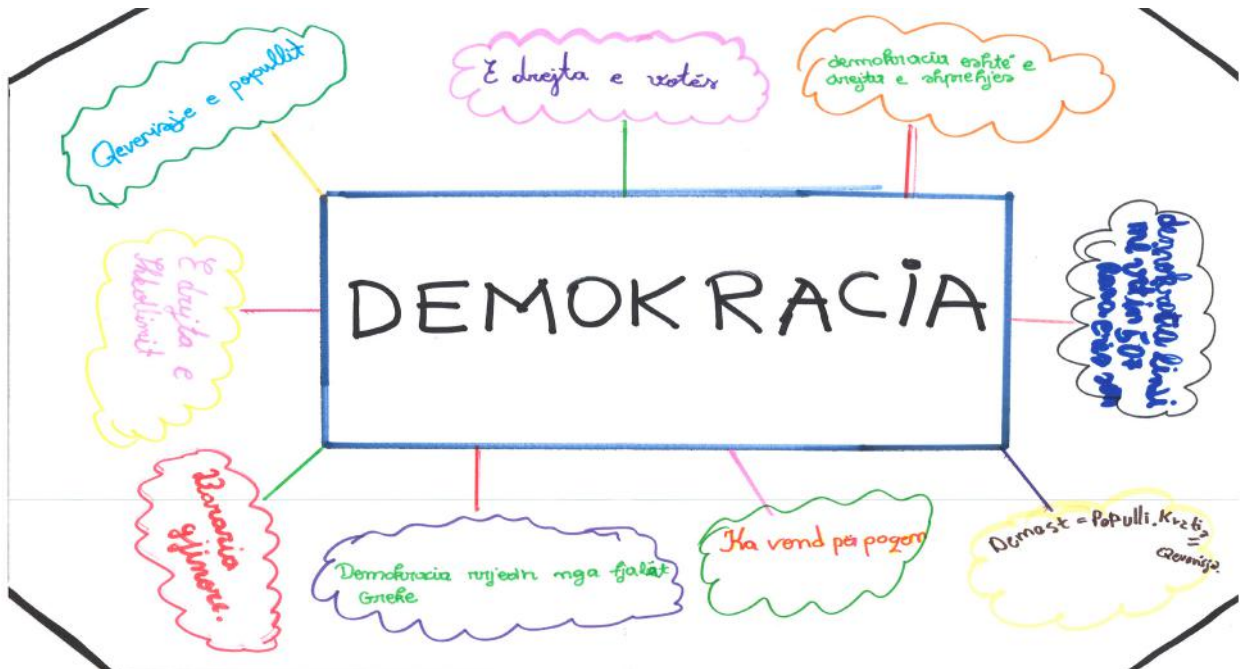 Qeverisje e popullit
E drejta e votës
demokracia eshtë e
drejta e shprehjes
DEMOKRACIA
E drejta e
Shkollimit
demokratia lindi
në vitin 507
para erës
Barazia
gjinore.
Demokracia vrjedh nga fjalët
Greke
Ka vend për pagem
Demost = Populli.
Qeverisja.